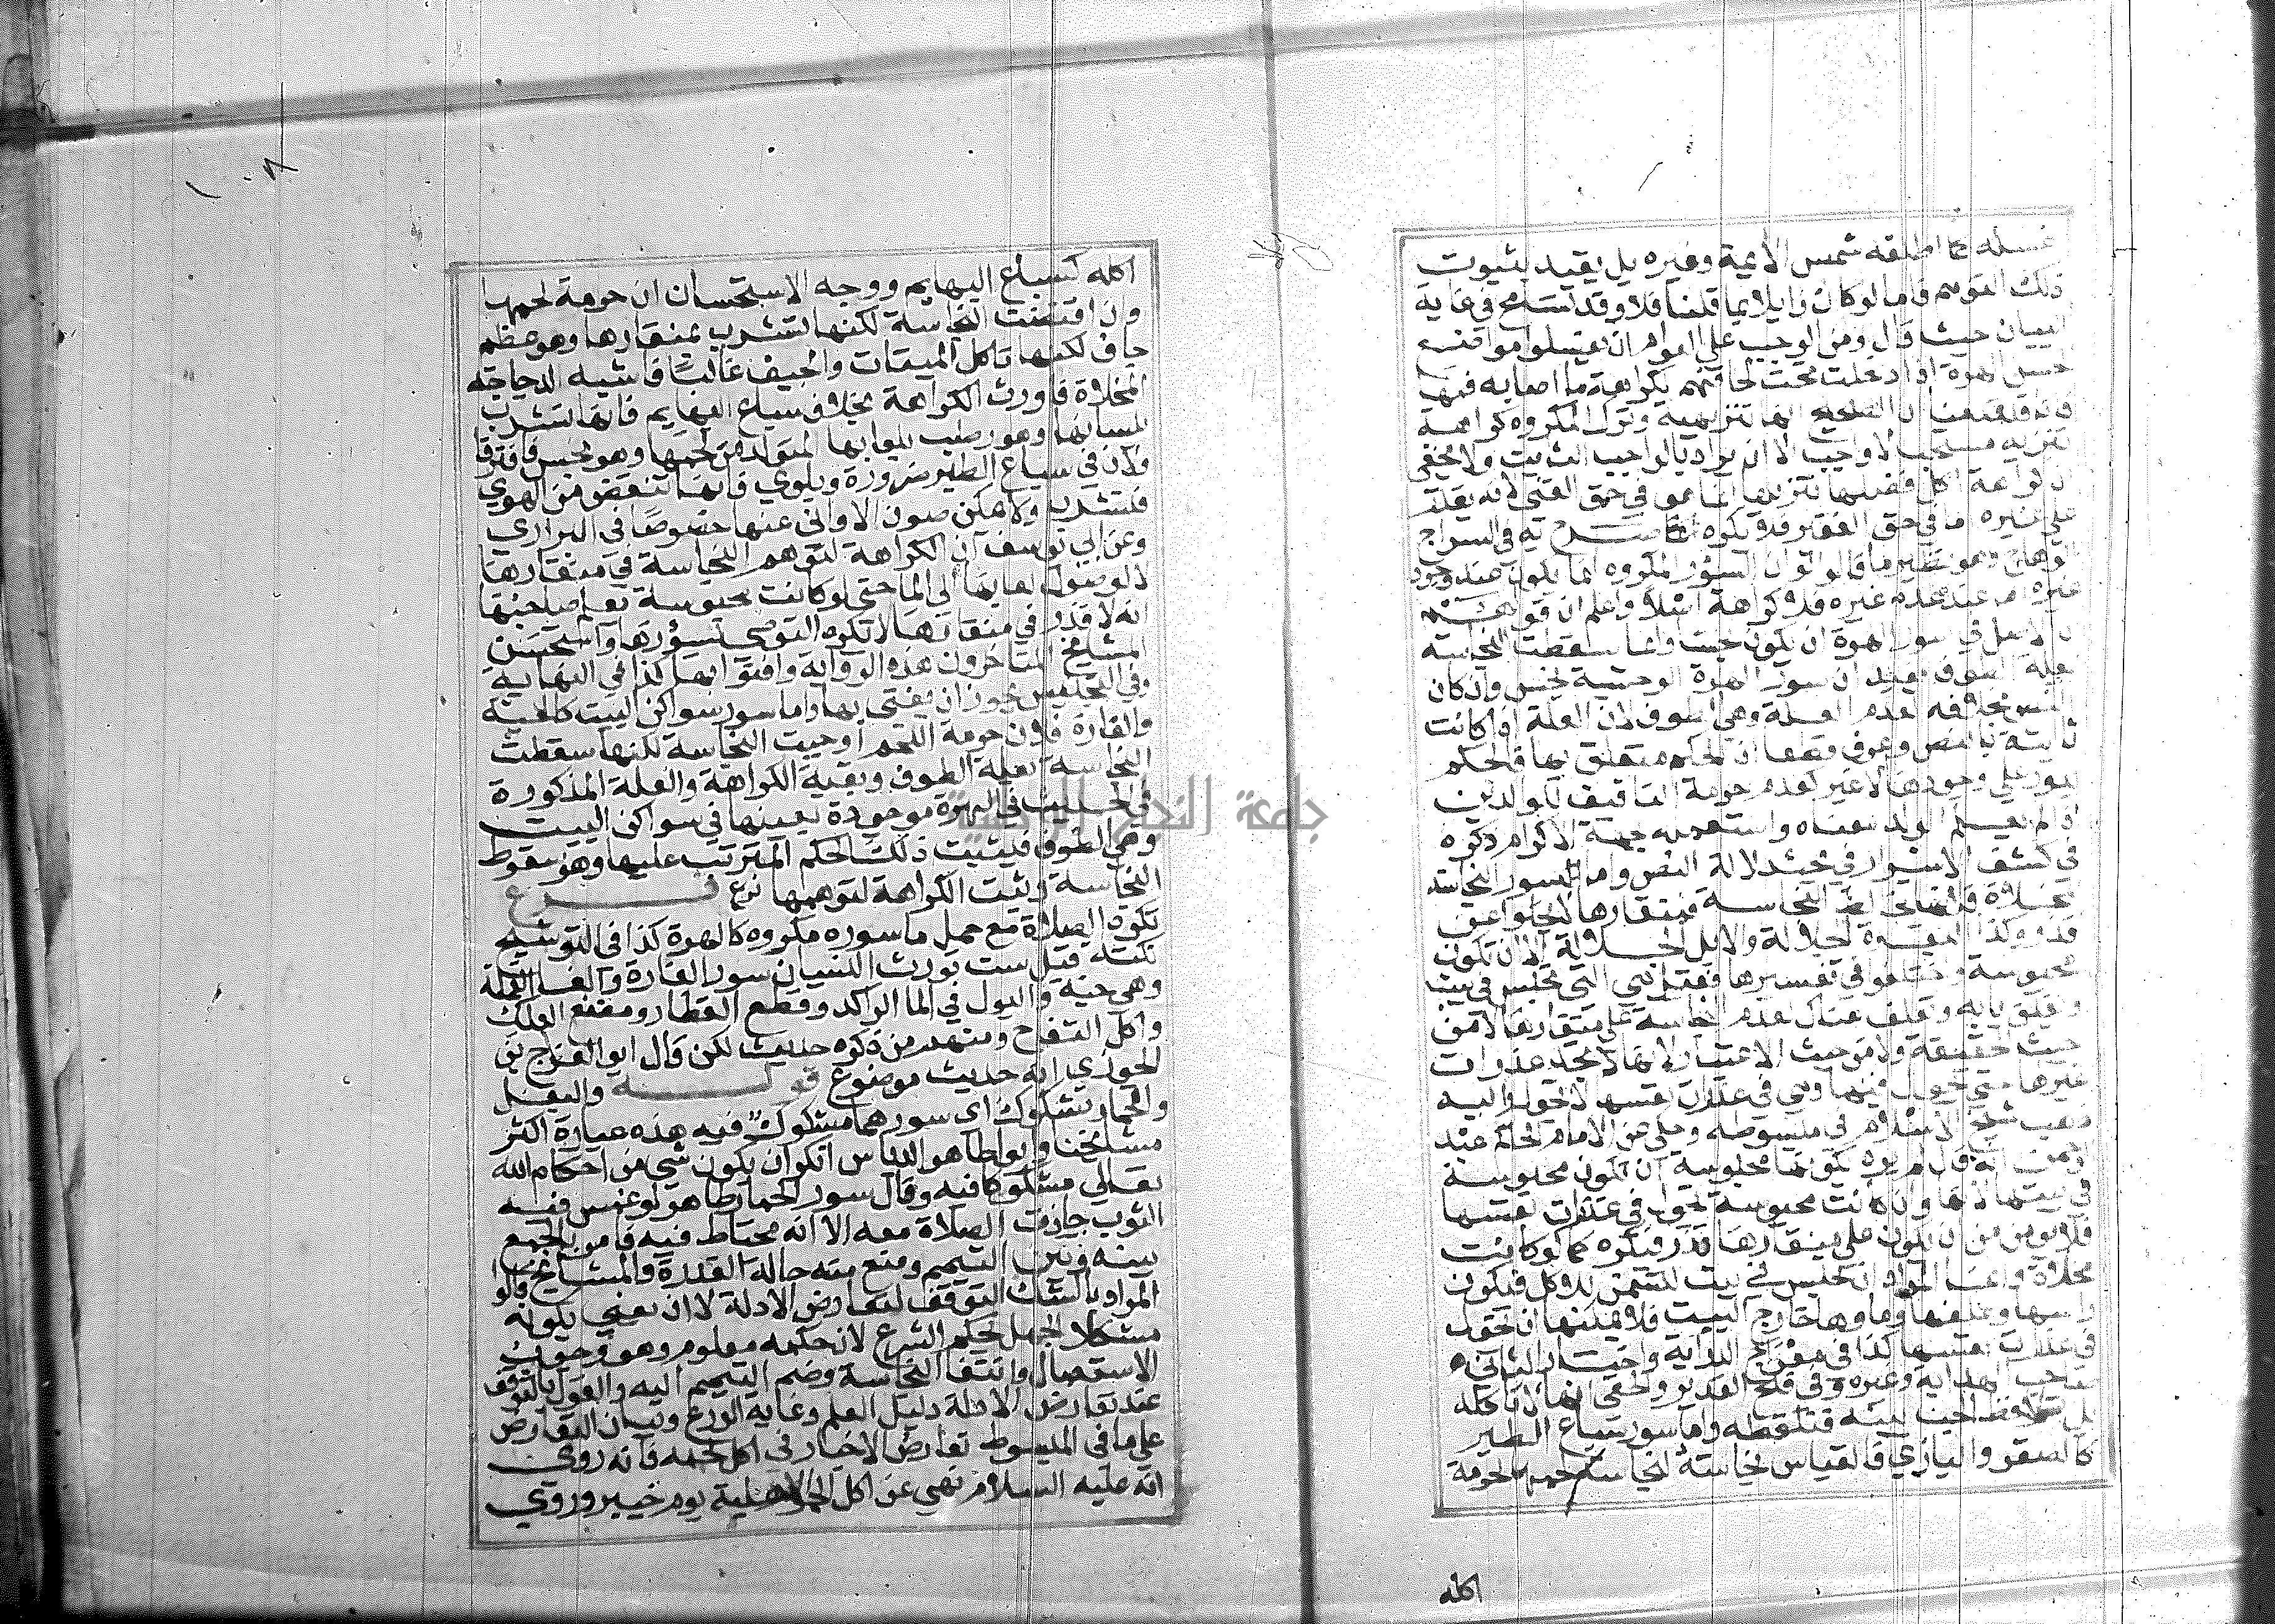 غسله كما اطلقه شمس الايمة وغيره بل يقيد بثبوت
ذلك التوهم فاما لو كان زايلا بما قلنا فلا وقد تسامح في غاية
البيان حيث قال ومن الواجب على العوام ان يغسلوا مواضع
لحس الهرة اذا دخلت تحت لحافهم لكراهة ما اصابه فمها
فانه قد الصحيح انها تنزيهية وترك المكروه كراهة
تنزيه مستحب لا واجب الا ان يراد بالواجب الثابت ولا يخفى
ان كراهة اكل فضلها تنزيها انما هو في حق الغني لانه يقدر
على غيره اما في حق الفقير فلا يكره كما صرح به في السراج
الوهاج وهو نظير ما قالوا ان السؤر المكروه انما يكون عند وجود
غيره اما عند عدم غيره فلا كراهة اصلا واعلم ان قولهم
ان الاصل في سور الهرة ان يكون نجسا وانما سقطت النجاسة
بعلة الطوف يفيد ان سور الهرة الوحشية نجس وان كان
النص بخلافه لعدم العلة وهي الطوف لان العلة اذا كانت
ثابتة بالنص وعرف قطعا ان الحكم متعلق بها فالحكم
يدور على وجودها لا غير كعدم حرمة التافيف للوالدين
اذا لم يعلم الولد معناه واستعمله بجهة الاكرام ذكره
في كشف الاسرار في بحث دلالة النص واما سور الدجاجة
المخلاة فلانها تخالط النجاسة فمنقارها لا يخلوا عن
قذر وكذا البقرة الجلالة والابل الجلالة الا ان تكون
محبوسة واختلفوا في تفسيرها فقيل هي التي تحبس في بيت
ويغلق بابه وتعلف هناك لعدم النجاسة على منقارها لا من
حيث الحقيقة ولا من حيث الاعتبار لانها لا تجد عذرات
غيرها حتى تجول فيها وهي في عذرات نفسها لا تجول واليه
ذهب شيخ الاسلام في مبسوطه وحكى عن الامام الحاكم عبد
الرحمن انه قال لم يرد بكونها محبوسة ان تكون محبوسة
في بيتها لانها وان كانت محبوسة تجول في عذرات نفسها
فلا يومن من ان يكون على منقارها قذر فيكره كما لو كانت
مخلاة وانما المراد ان تحبس في بيت لتسمن للاكل فيكون
راسها وعلفها وماوها خارج البيت فلا يمكنها ان تجول
في عذرات نفسها كذا في معراج الدراية واختار الثاني
صاحب الهداية وغيره وفي فتح القدير والحق انها لا تاكله
بل تلاحظ الحب بينه فتلتقطه واما سور سباع الطير
كالصقر والبازي فالقياس نجاسته لنجاسة لحمها لحرمة
اكله
اكله كسباع البهايم ووجه الاستحسان ان حرمة لحمها
وان اقتضت النجاسة لكنها تشرب بمنقارها وهو عظم
جاف لكنها تاكل الميتات والجيف غالبًا فاشبه الدجاجة
المخلاة فاورث الكراهة بخلاف سباع البهايم فانها تشرب
بلسانها وهو رطب بلعابها المتولد من لحمها وهو نجس فافترقا
ولان في سباع الطير ضرورة وبلوى فانها تنقض من الهوي
فتشرب ولا يمكن صون الاواني عنها خصوصًا في البراري
وعن ابي يوسف ان الكراهة لتوهم النجاسة في منقارها
لا لوصول لعابها الى الما حتى لو كانت محبوسة يعلم صاحبها
انه لا قذر في منقارها لا يكره التوضي بسؤرها واستحسن
المشايخ المتاخرون هذه الرواية وافتوا بها كذا في النهاية
وفي التجنيس يجوز ان يفتى بها واما سور سواكن البيت كالحية
والفارة فلان حرمة اللحم اوجبت النجاسة لكنها سقطت
النجاسة بعلة الطوف وبقية الكراهة والعلة المذكورة
في الحديث في الهرة موجودة بعينها في سواكن البيت
وهي الطوف فيثبت ذلك الحكم المترتب عليها وهو سقوط
النجاسة وتثبت الكراهة لتوهمها فرع فرع
تكره الصلاة مع حمل ما سوره مكروه كالهرة كذا في التوشيح
نكتة قيل ست تورث النسيان سور الفارة والقا القملة
وهي حية والبول في الما الراكد وقطع القطار ومضغ العلك
واكل التفاح ومنهم من ذكره حديثا لكن قال ابو الفرج بن
الجوزي انه حديث موضوع قوله والبغل
والحمار مشكوك اي سورهما مشكوك فيه هذه عبارة اكثر
مشايخنا وابو طاهر الدباس انكر ان يكون شي من احكام الله
تعالي مشكوكا فيه وقال سور الحمار طاهر لو غمس فيه
الثوب جازت الصلاة معه الا انه محتاط فيه فامر بالجمع
بينه وبين التيمم ومنع منه حالة القدرة والمشايخ قالوا
المراد بالشك التوقف لتعارض الادلة لا ان يعني بكونه
مشكلا الجهل لحكم الشرع لان حكمه معلوم وهو وجوب
الاستعمال وانتفا النجاسة وضم التيمم اليه والقول بالتوقف
عند تعارض الادلة دليل العلم وغاية الورع وبيان التعارض
على ما في المبسوط تعارض الاخبار في اكل لحمه فانه روى
انه عليه السلام نهى عن اكل الحمر الاهلية يوم خيبر وروي
١٠٨
جامعة النجاح الوطنية